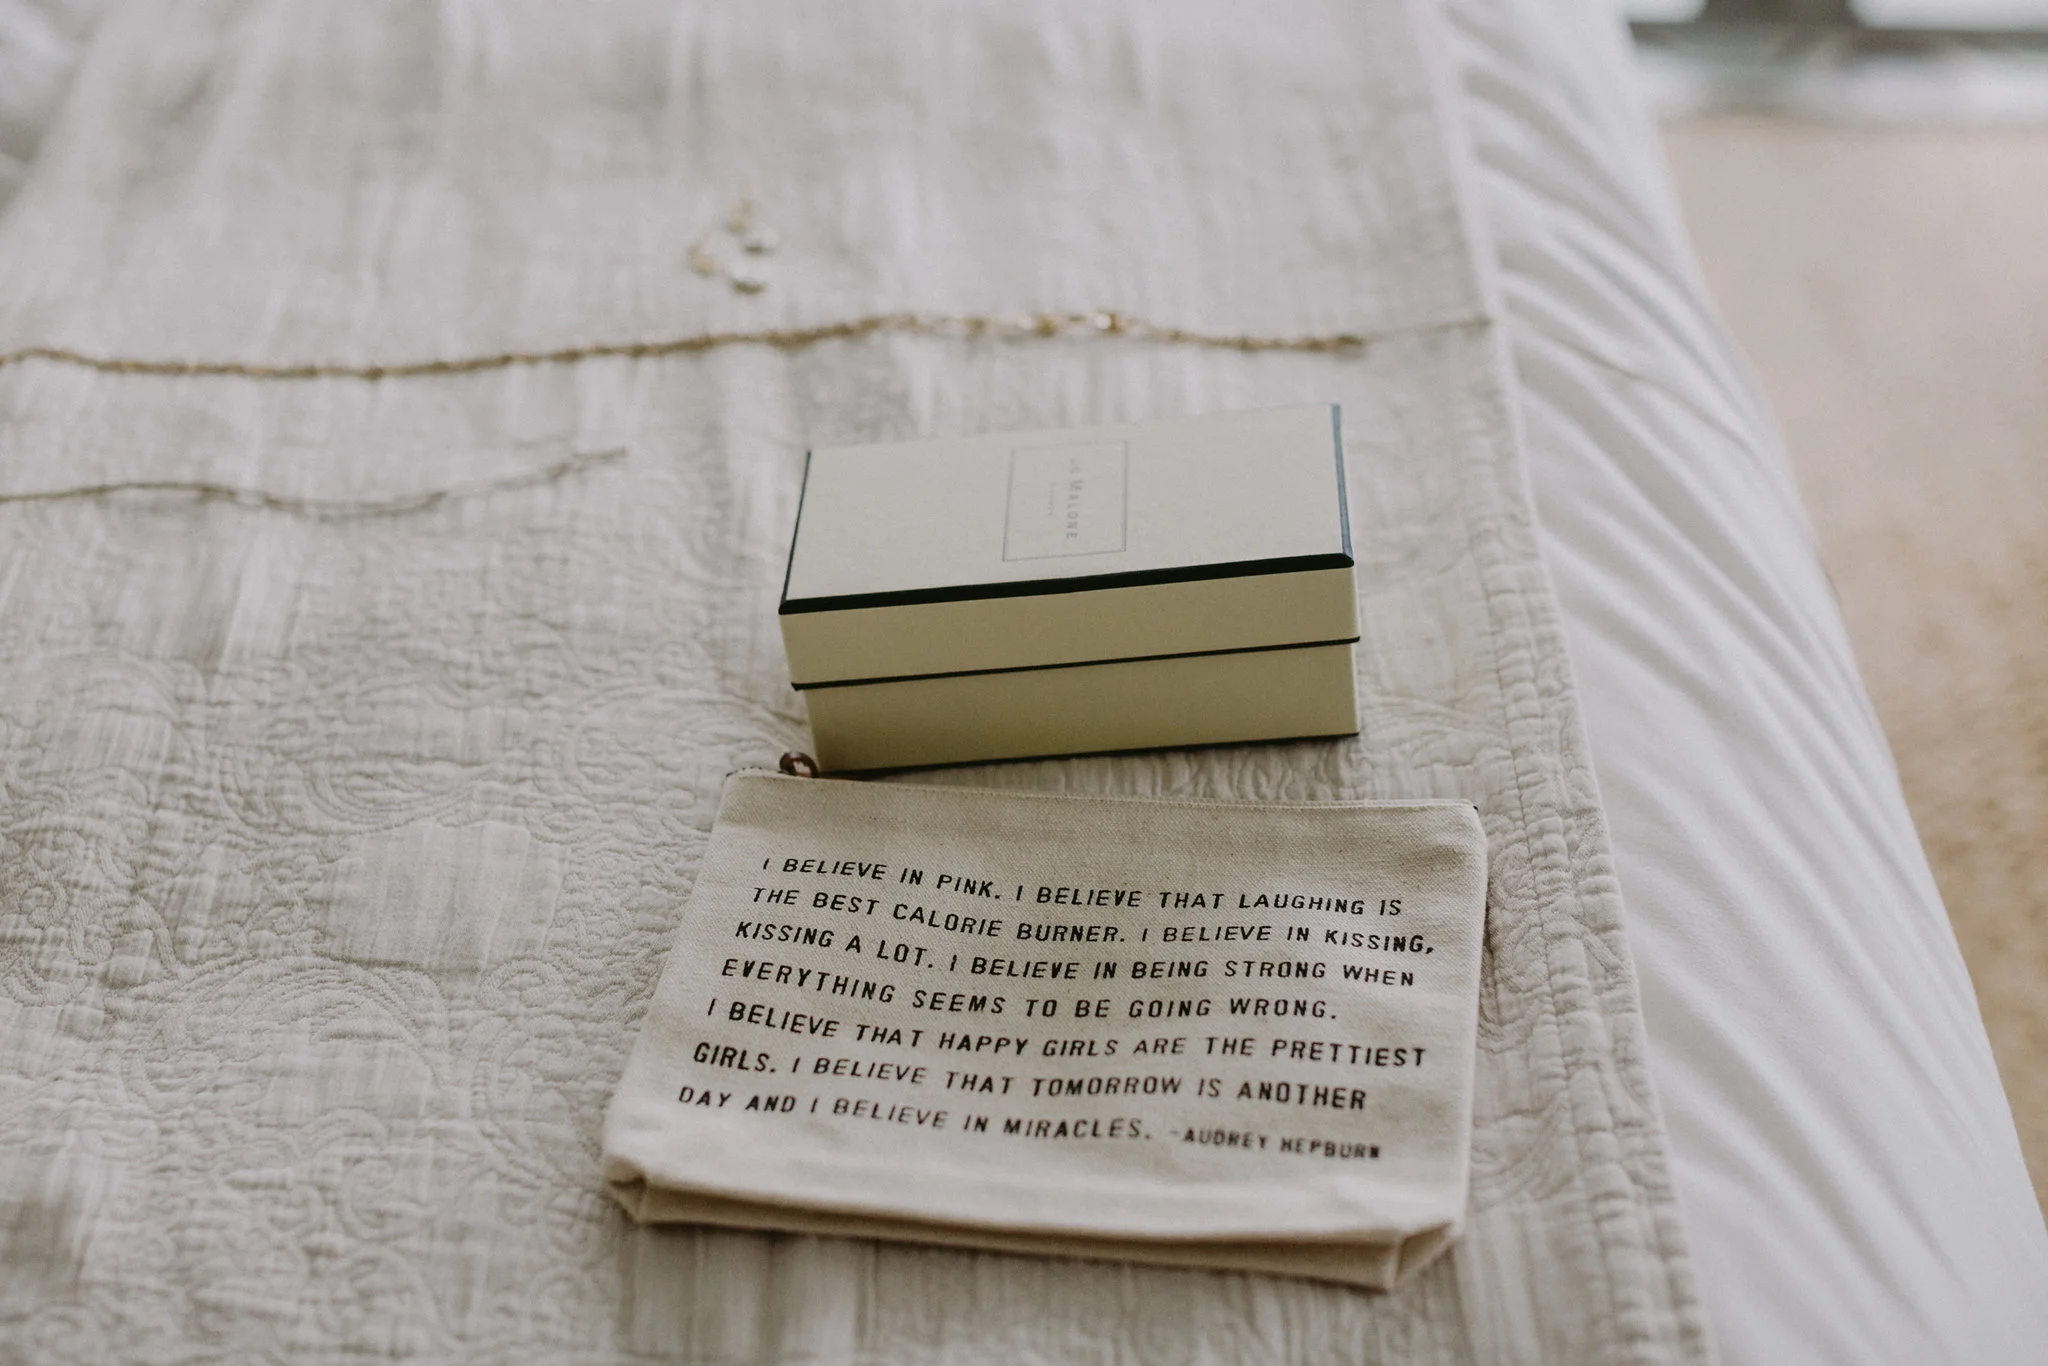 Jo MALONE
LONDON
I BELIEVE IN PINK. I BELIEVE THAT LAUGHING IS
THE BEST CALORIE BURNER. I BELIEVE IN KISSING,
KISSING A LOT. I BELIEVE IN BEING STRONG WHEN
EVERYTHING SEEMS TO BE GOING WRONG.
I BELIEVE THAT HAPPY GIRLS ARE THE PRETTIEST
GIRLS. I BELIEVE THAT TOMORROW IS ANOTHER
DAY AND I BELIEVE IN MIRACLES. -AUDREY HEPBURN